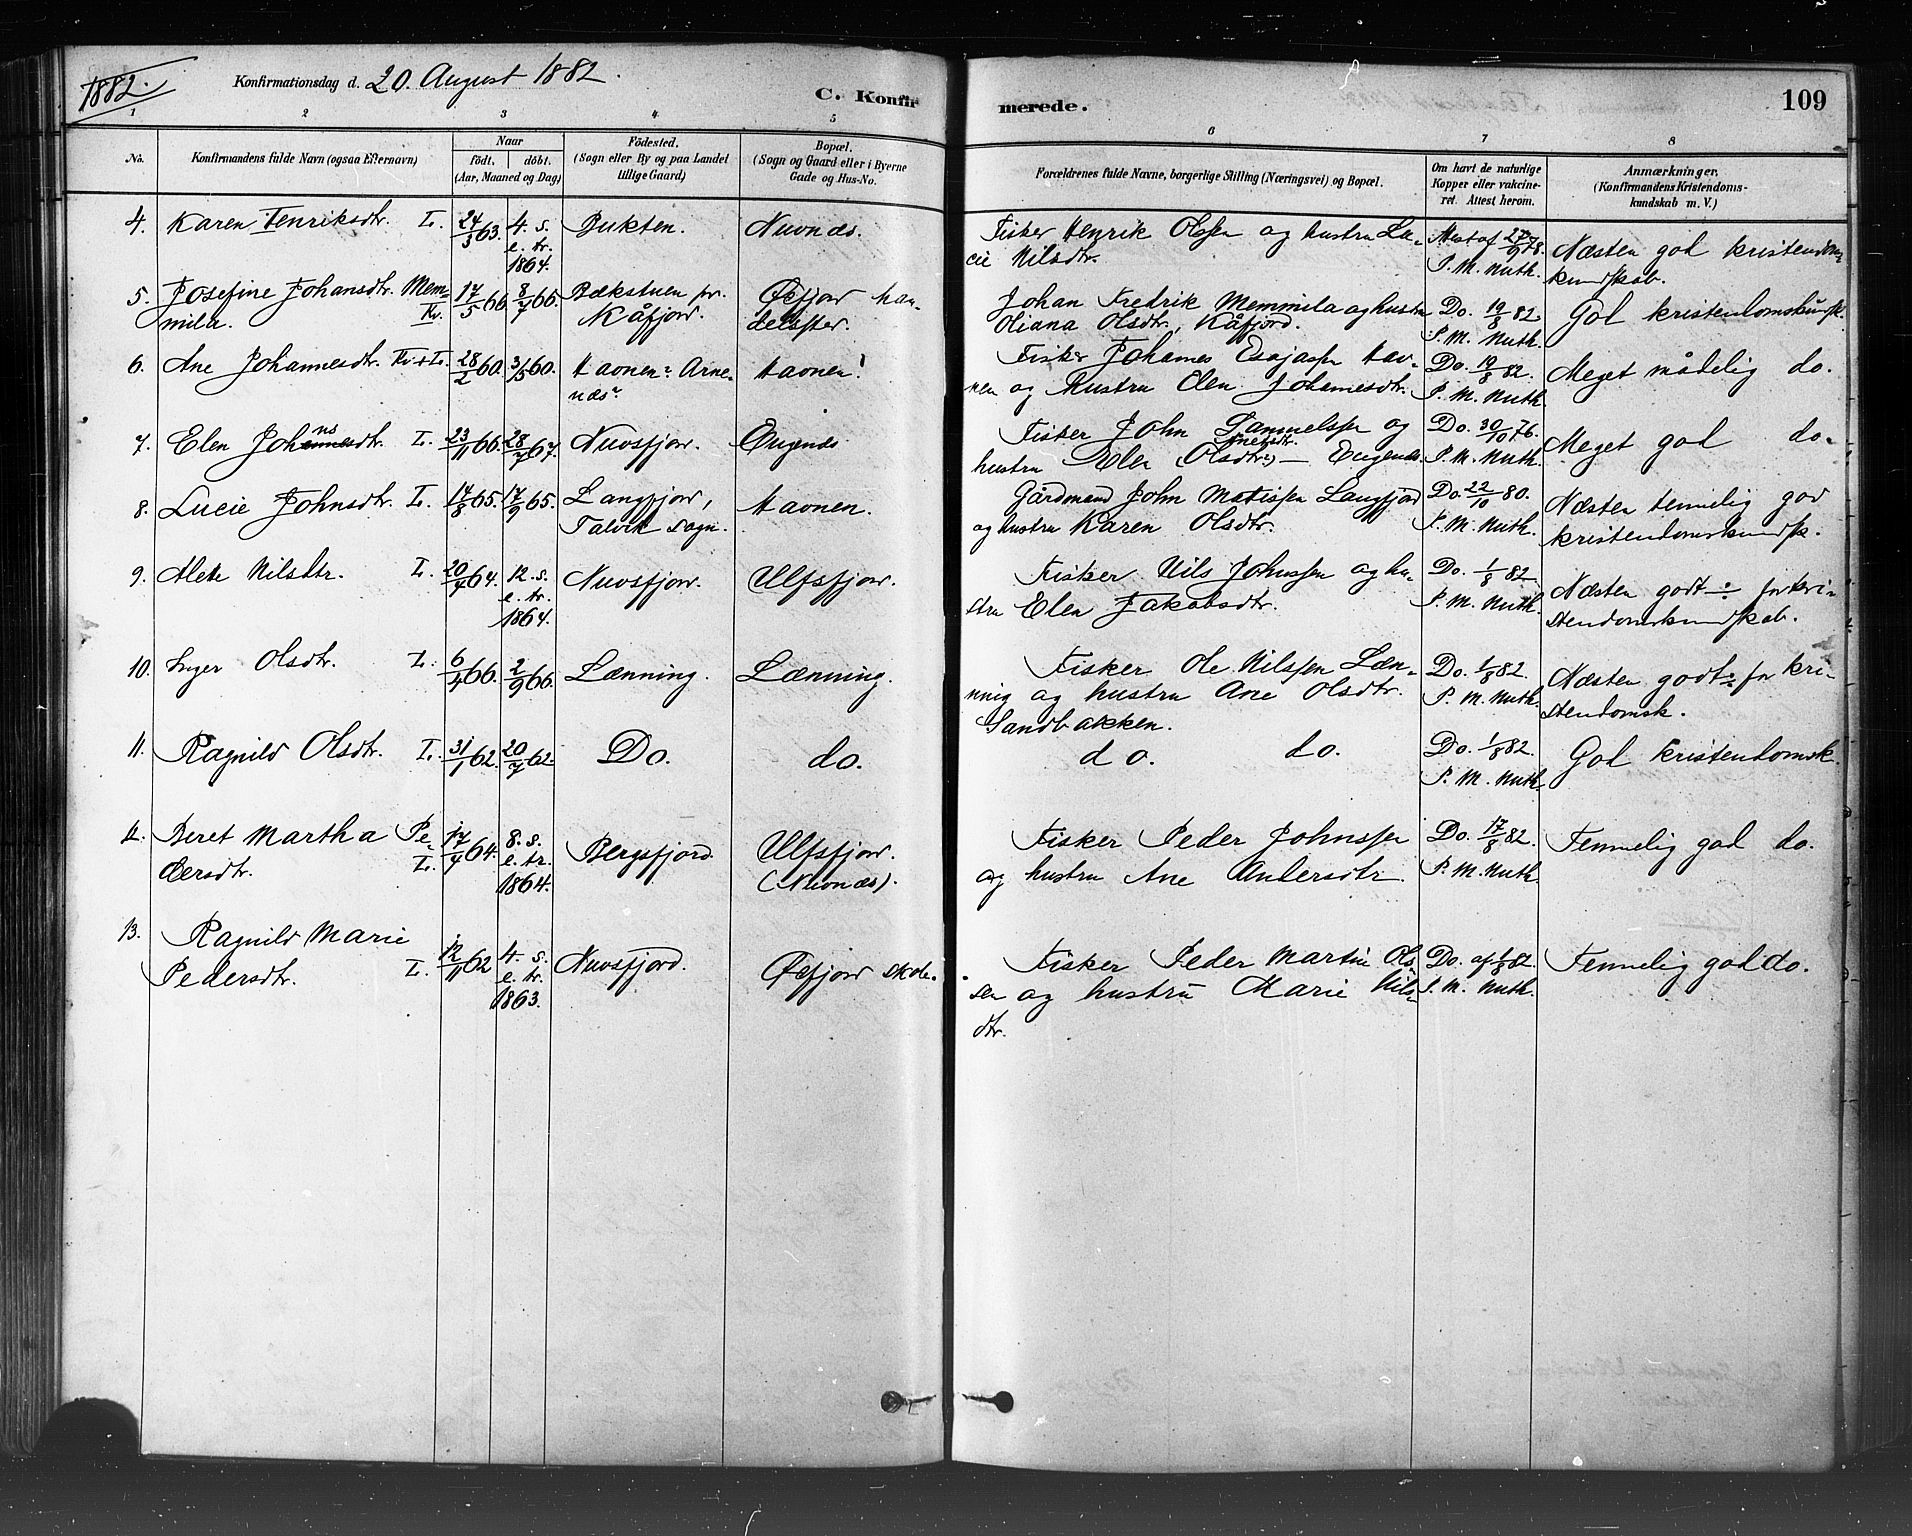 1882.
Konfirmationsdag d. 20. August 1882.
C. Konfir
merede.
109
1 2 3 4 5 6 7 8
No.
Konfirmandens fulde Navn (ogsaa Efternavn)
Naar
födt, döbt.
(Aar, Maaned og Dag)
Födested.
(Sogn eller By og paa Landet
tillige Gaard)
Bopæl.
(Sogn og Gaard eller i Byerne
Gade og Hus-No.
Forældrenes fulde Navne, borgerlige Stilling (Næringsvei) og Bopæl.
Om havt de naturlige
Kopper eller vakcine-
ret. Attest herom.
Anmærkninger.
(Konfirmandens Kristendoms-
kundskab m. V.)
4. Karen Henriksdtr. L. 24/3 63. 4. s. e. tr. 1864. Bukten. Nuvnæs.
Fisker Henrik Olssen og hustru Lu-
cie Nilsdtr.
Attest af 27/9 78.
P. M. Nuth.
Næsten god kristendoms-
kundskab.
5. Josefine Johansdtr. Mem-
mila. Kv. 17/5 66. 8/7 66. Bækstuen pr.
Kåfjord. Øxfjord han-
delssted.
Johan Fredrik Memmila og hustru
Oliana Olsdtr., Kåfjord.
Do. 19/8 82.
P. M. Nuth.
God kristendomskundsk.
6. Ane Johannesdtr. Kv+L. 28/2 60. 3/5 60. Havnen? Arne-
næs? Havnen!
Fisker Johannes Esajassen Hav-
nen og Hustru Elen Johannesdtr.
Do. 19/8 82.
P. M. Nuth.
Meget mådelig do.
7. Elen Johnsdtr. L. 23/11 66. 28/7 67. Nuvsfjord. Eugenæs
Fisker John Sammelssen og
hustru Elen (Olsdtr?) — Eugenæs.
Do. 30/10 76.
P. M. Nuth.
Meget god do.
8. Lucie Johnsdtr. L. 17/8 65. 17/9 65. Langfjord,
Talvik sogn. Havnen.
Gårdmand John Matissen Langfjord
og hustru Karen Olsdtr.
Do. 22/10 80.
P. M. Nuth.
Næsten temmelig god
kristendomskundsk.
9. Alette Nilsdtr. L. 20/4 64. 12. s. e. tr. 1864. Nuvsfjord. Ulfsfjord.
Fisker Nils Johnssen og hu-
stru Elen Jakobsdtr.
Do. 1/8 82.
P. M. Nuth.
Næsten godt ÷ for kri-
stendomskundskab.
10. Inger Olsdtr. L. 6/4 66. 2/9 66. Lænning. Lænning.
Fisker Ole Nilssen Læn-
ning og hustru Ane Olsdtr.
Sandbakken.
Do. 1/8 82.
P. M. Nuth.
Næsten godt ÷ for kri-
stendomsk.
11. Ragnild Olsdtr. L. 31/1 62. 20/7 62. Do. do.
do. do.
Do. 1/8 82.
P. M. Nuth.
God kristendomsk.
12. Beret Martha Pe-
dersdtr. L. 17/4 64. 8. s. e. tr. 1864. Bergsfjord. Ulfsfjord.
(Nuvnæs).
Fisker Peder Johnssen
og hustru Ane Andersdtr.
Do. 17/8 82.
P. M. Nuth.
Temmelig god do.
13. Ragnild Marie
Pedersdtr. L. 12/11 62 4. s. e. tr. 1863. Nuvsfjord. Øxfjord skole.
Fisker Peder Martin Ols-
sen og hustru Marie Nils-
dtr.
Do. af 1/8 82.
P. M. Nuth.
Temmelig god do.